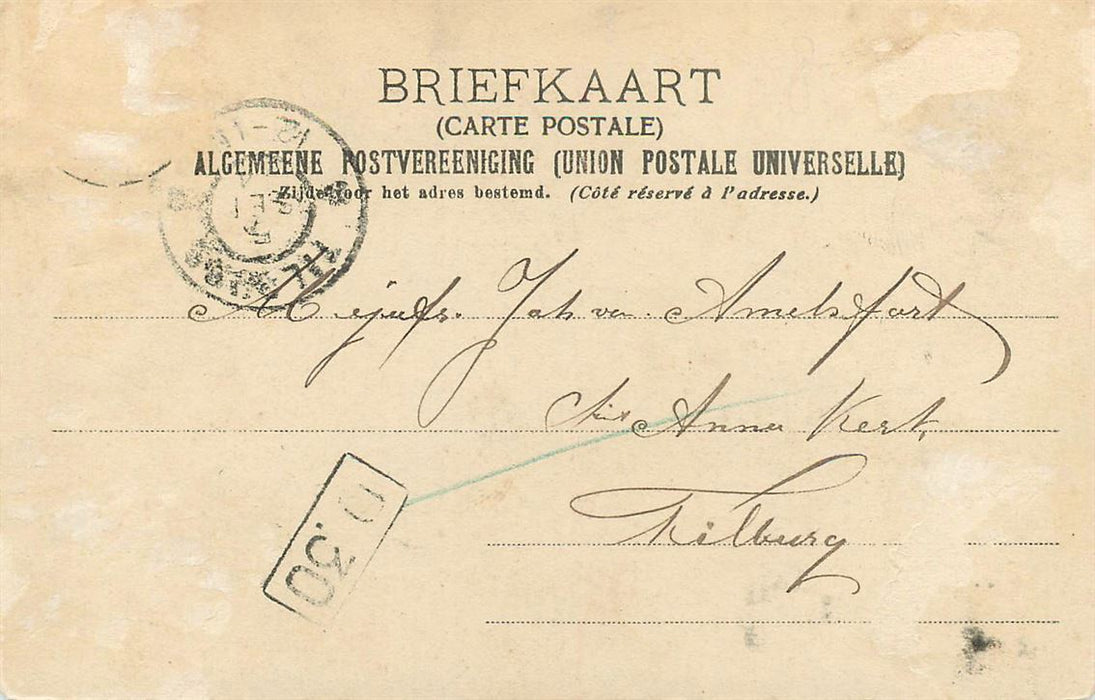 BRIEFKAART
(CARTE POSTALE)
ALGEMEENE POSTVEREENIGING (UNION POSTALE UNIVERSELLE)
Zijde voor het adres bestemd. (Côté réservé à l'adresse.)
TILBURG
Mejufr. Joh van Amelsfort
Anna Kerk,
Tilburg